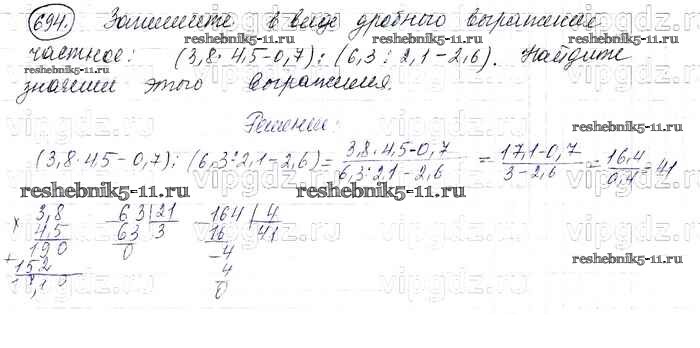 694. Запишите в виде дробного выражения
частное: (3,8 · 4,5 - 0,7) : (6,3 : 2,1 - 2,6). Найдите
значение этого выражения.
Решение:
(3,8 · 4,5 - 0,7) : (6,3 : 2,1 - 2,6) = 3,8 · 4,5 - 0,7 / 6,3 : 2,1 - 2,6 = 17,1 - 0,7 / 3 - 2,6 = 16,4 / 0,4 = 41
× 3,8 63 | 21 164 | 4
45 63 3 16 41
190 0 4
+ 152 4
17,10 0
reshebnik5-11.ru
reshebnik5-11.ru
reshebnik5-11.ru
reshebnik5-11.ru
reshebnik5-11.ru
reshebnik5-11.ru
reshebnik5-11.ru
vipgdz.ru
vipgdz.ru
vipgdz.ru
vipgdz.ru
vipgdz.ru
vipgdz.ru